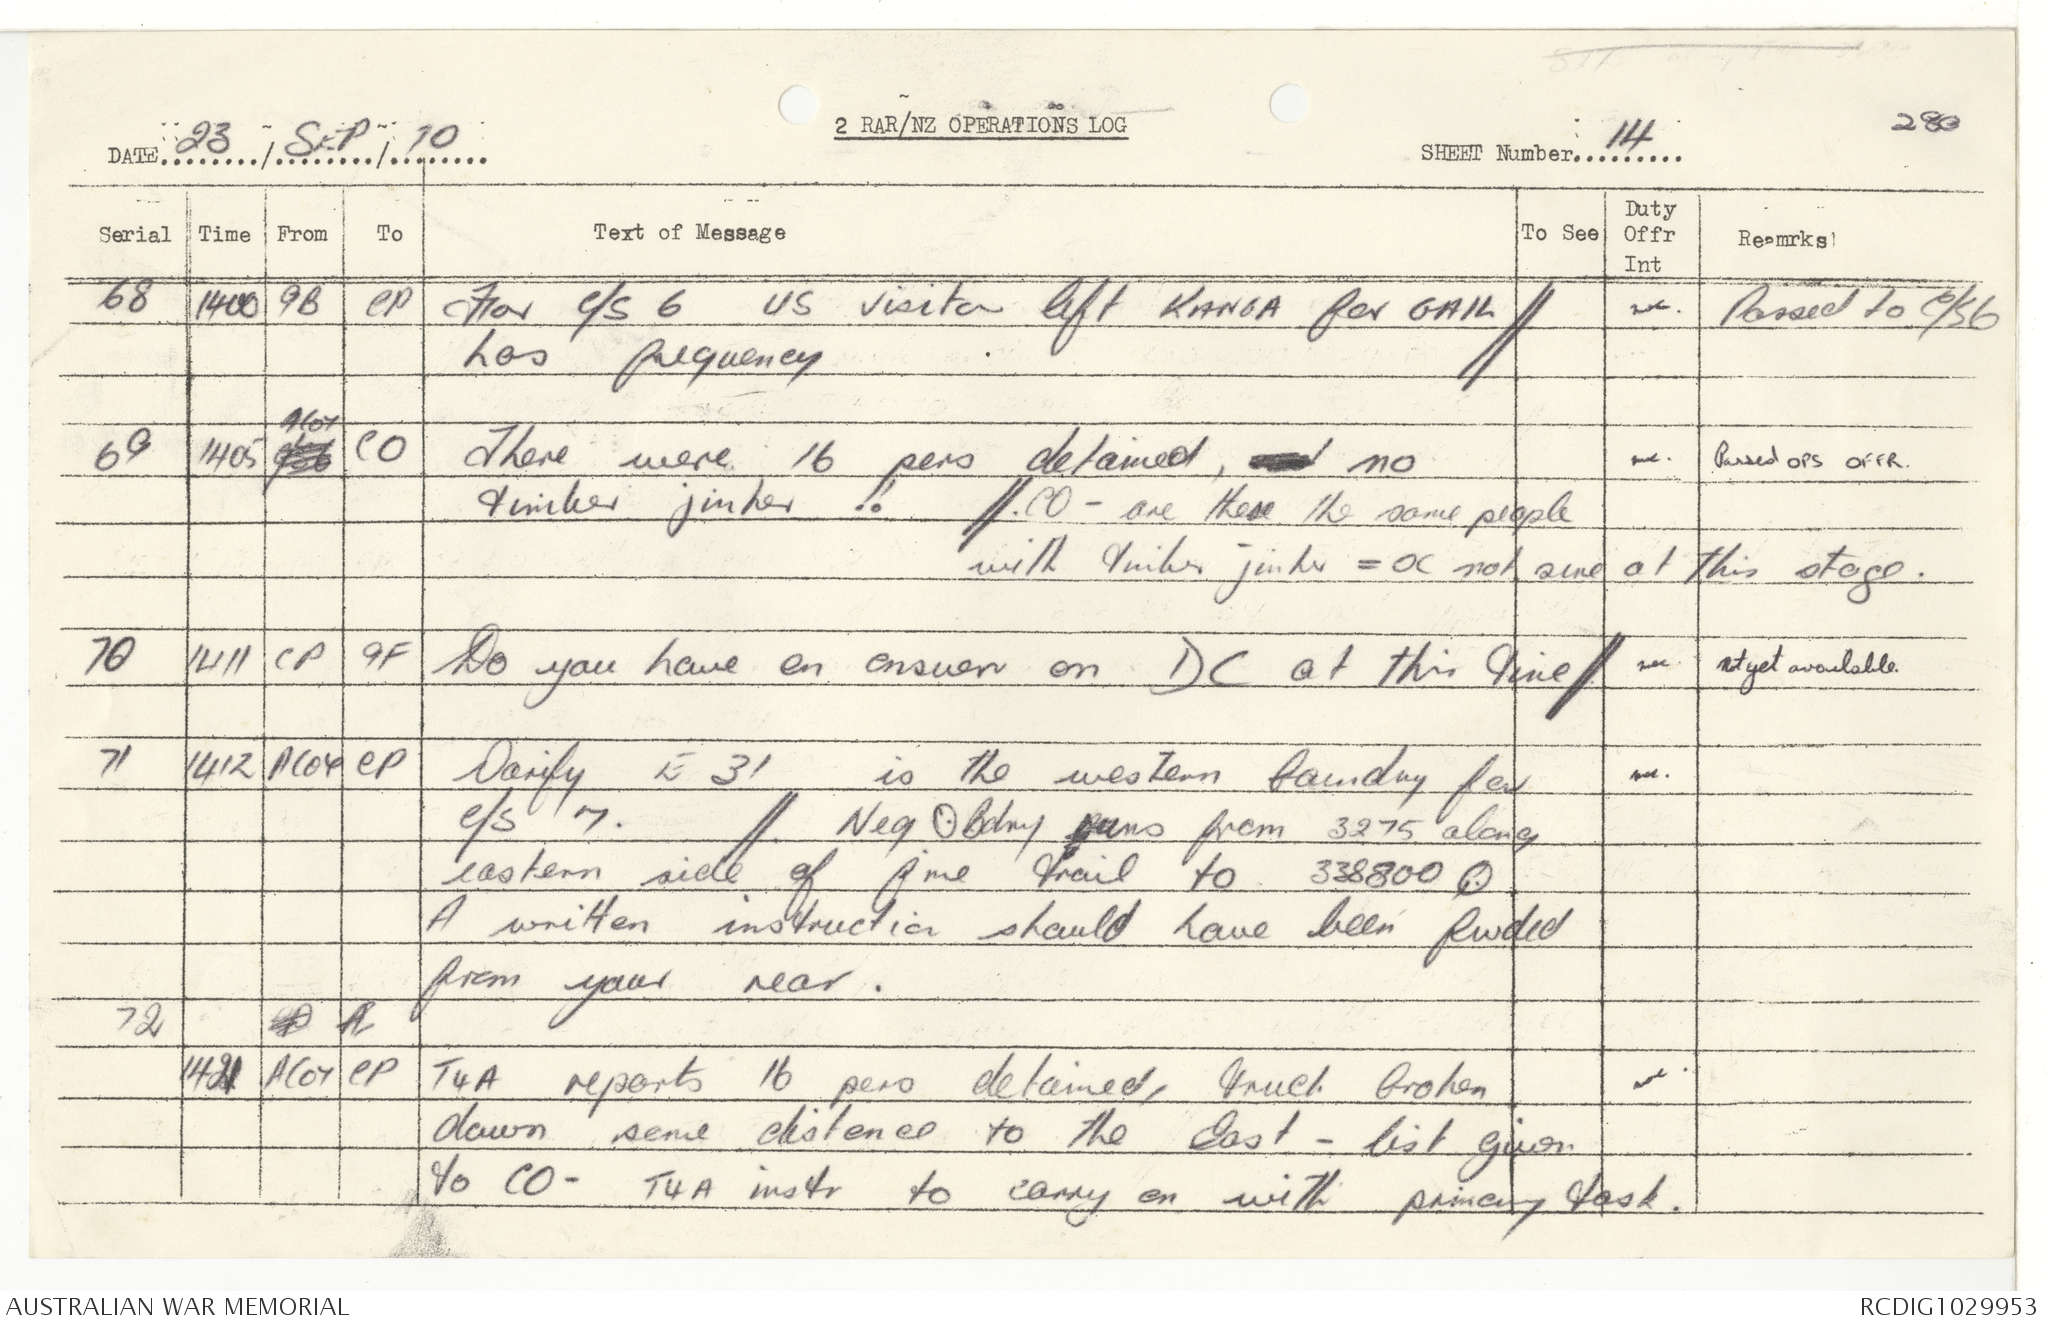 2 RAR/NZ OPERATIONS LOG
280
DATE 23 / SEP / 70
SHEET Number 14
Serial Time From To Text of Message To See Duty Offr Int Remrks
68 1400 9B CP For C/S 6 US visitor left KANGA for GAIL // Passed to C/S 6
has frequency
A Coy
69 1405 CO There were 16 pers detained, no Passed OPS OFFR.
timber jinker !! // CO - are these the same people
with timber jinker = OC not sure at this stage.
70 1411 CP 9F Do you have an answer on DC at this time // Not yet available.
71 1412 A Coy CP Clarify E 31 is the western boundry for
C/S 7. // Neg Bdry runs from 3275 along
eastern side of fire trail to 338800
A written instruction should have been fwded
from your rear.
72
1421 A Coy CP T4A reports 16 pers detained, truck broken
down some distance to the East - list given
to CO - T4A instr to carry on with primary task.
AUSTRALIAN WAR MEMORIAL
RCDIG1029953